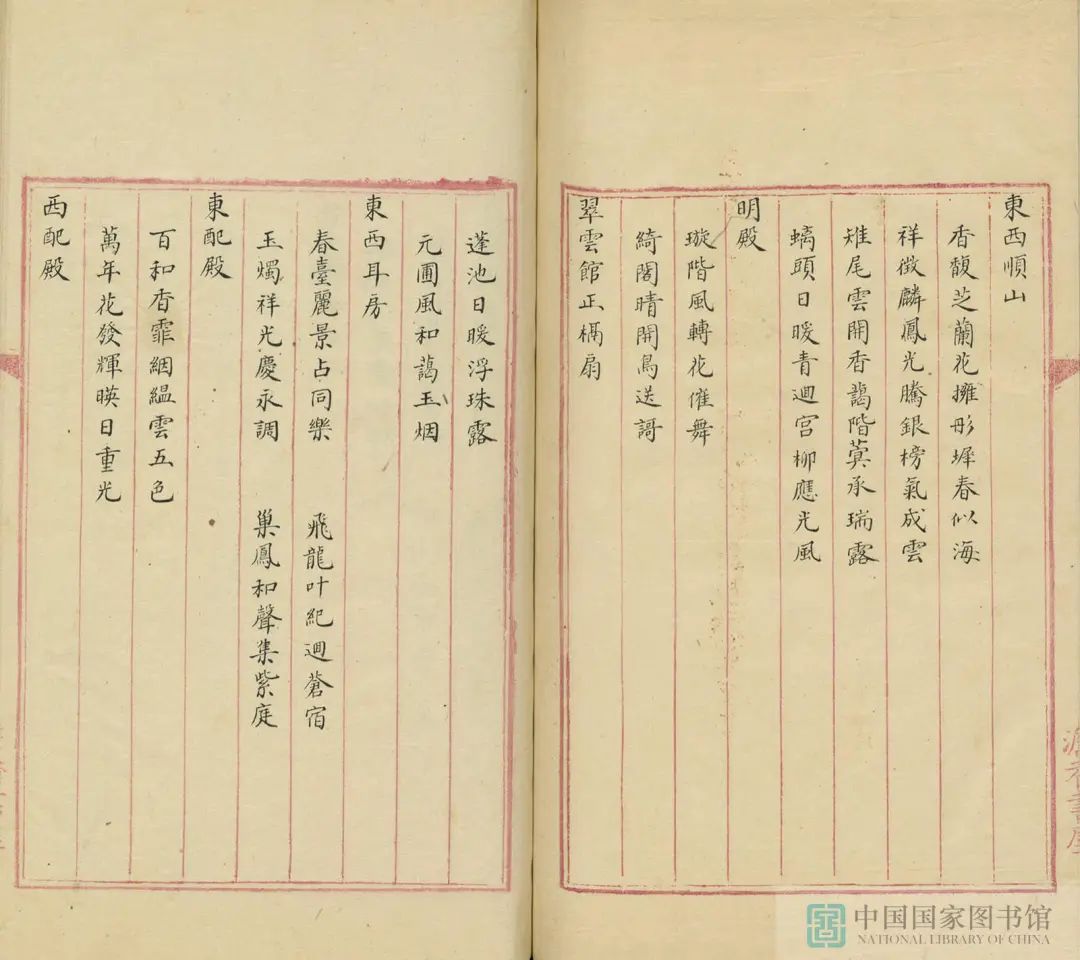 東西順山
香馥芝蘭花擁彤墀春似海
祥徵麟鳳光騰銀榜氣成雲
雉尾雲開香藹階蓂承瑞露
螭頭日暖青迴宮柳應光風
明殿
璇階風轉花催舞
綺閣晴開鳥送謌
翠雲館正槅扇
蓬池日暖浮珠露
元圃風和藹玉烟
東西耳房
春臺麗景占同樂 飛龍叶紀迴蒼宿
玉燭祥光慶永調 巢鳳和聲集紫庭
東配殿
百和香霏絪縕雲五色
萬年花發輝暎日重光
西配殿
中国国家图书馆
NATIONAL LIBRARY OF CHINA